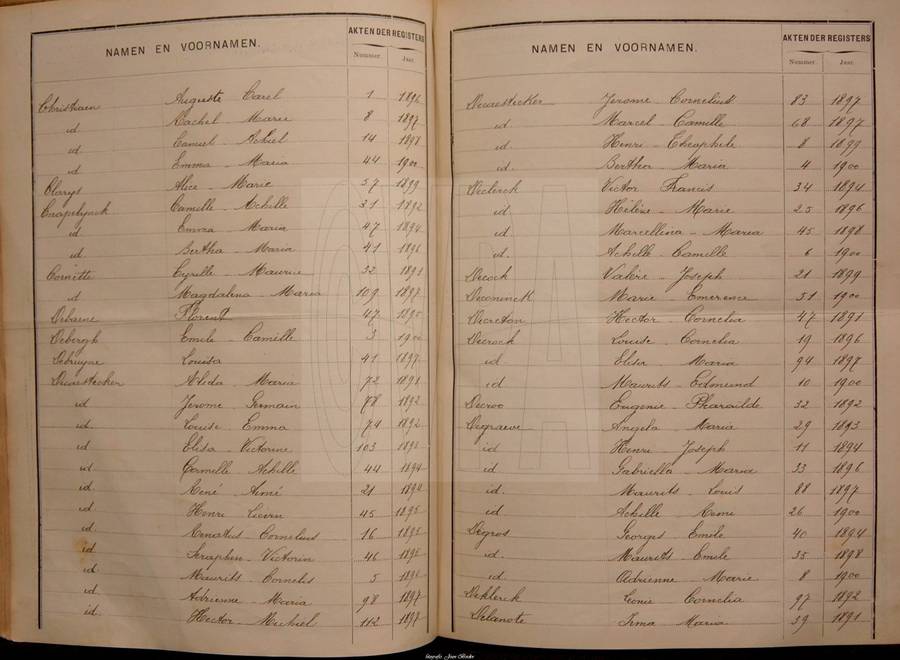 NAMEN EN VOORNAMEN. AKTEN DER REGISTERS
Nummer. Jaar.
Christiaen Auguste Carel 1 1896
id Rachel - Marie 8 1897
id Camiel Achiel 14 1898
id Emma - Maria 44 1900
Clarys Alice - Marie 57 1899
Camille - Achille 31 1892
id Emma - Maria 47 1894
id Bertha - Maria 41 1896
Cornette Cyrille - Maurice 32 1891
id Magdalena - Maria 109 1897
Debaene Florent 47 1895
Emile - Camille 3 1900
Debruyne Louisa 41 1897
Decaestecker Alida - Maria 72 1891
id Jerome - Germain 78 1892
id Louise - Emma 74 1892
id Elisa - Victorine 103 1893
id Camille - Achille 44 1894
id René - Aimé 21 1894
id Henri Lievin 45 1895
id Cornelius 16 1895
id Seraphin - Victorin 46 1895
id Maurits - Cornelis 5 1896
id Adrienne - Maria 98 1897
id Hector - Michiel 112 1897
NAMEN EN VOORNAMEN. AKTEN DER REGISTERS
Nummer. Jaar.
Decaestecker Jerome - Cornelius 83 1897
id Marcel - Camille 68 1897
id Henri - Theophile 8 1899
id. Bertha Maria 4 1900
Declerck Victor Francis 34 1894
id. Hélène - Marie 25 1896
id Marcellina - Maria 45 1898
id. Achille - Camille 6 1900
Decock Valère - Joseph 21 1899
Deconinck Marie - Emerence 51 1900
Decreton Hector - Cornelia 47 1891
Decrock Louise - Cornelia 19 1896
id Elisa - Maria 94 1897
id Maurits - Edmund 10 1900
Decroo Eugenie - Pharaïlde 32 1892
Degraeve Angela Maria 29 1893
id Henri Joseph 11 1894
id Gabriella - Maria 33 1896
id. Maurits - Louis 88 1897
id. Achille - Remi 26 1900
Degros Georges Emile 40 1894
id. Maurits - Emile 35 1898
id. Adrienne - Marie 8 1900
Deklerck Leonie - Cornelia 97 1892
Delanote Irma - Maria 39 1891